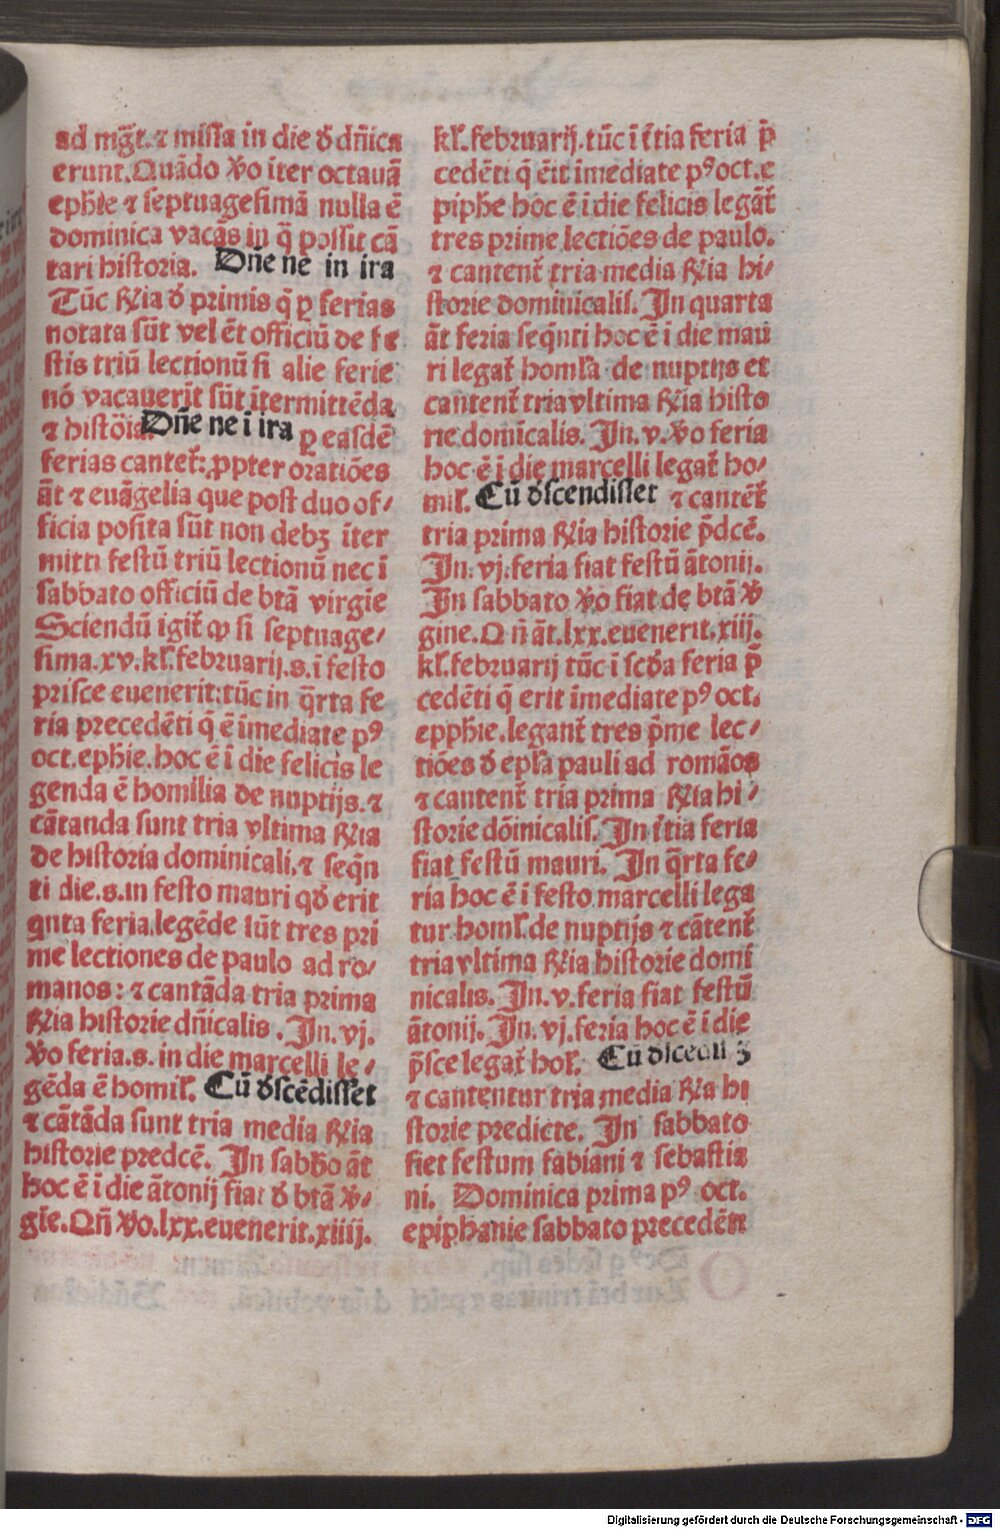 ad mg̃t. ⁊ missa in die ꝺ̆ dñica
erunt. Quãdo v̆o iter octauã
ephĩe ⁊ septuagesimã nulla ẽ
dominica vacãs in q̃ possit cã
tari historia. Dñe ne in ira
Tũc R̃ia ꝺ̆ primis q̃ ꝑ ferias
notata sũt vel ẽt officiũ de fe
stis triũ lectionũ si alie ferie
nõ vacauerĩt sũt ĩtermittẽda
⁊ histõia. Dñe ne ĩ ira ꝑ easdẽ
ferias cantet̃: ꝓpter oratiões
ãt ⁊ euãgelia que post duo of⸗
ficia posita sũt non debꝫ ĩter
mitti festũ triũ lectionũ nec ĩ
sabbato officiũ de btã virgĩe
Sciendũ igit̃ ꝙ si septuage⸗
sima .xv. kl̃. februarij .s. ĩ festo
prisce euenerit: tũc in q̃rta fe
ria precedẽti q̃ ẽ ĩmediate pꝰ
oct. ephĩe. hoc ẽ ĩ die felicis le
genda ẽ homilia de nuptijs. ⁊
cãtanda sunt tria vltima R̃ia
de historia dominicali, ⁊ seq̃n
ti die .s. in festo mauri qꝺ̆ erit
qnta feria legẽde sũt tres pri
me lectiones de paulo ad ro⸗
manos: ⁊ cantãda tria prima
R̃ia historie dñicalis. In .vj.
v̆o feria .s. in die marcelli le⸗
gẽda ẽ homil̃. Cũ ꝺ̆scẽdisset
⁊ cãtãda sunt tria media R̃ia
historie predcẽ. In sabbõ ãt
hoc ẽ ĩ die ãtonij fiat ꝺ̆ btã v̆⸗
gĩe. Qñ v̆o .lxx. euenerit .xiiij.
kl̃. februarij. tũc ĩ t̃tia feria p̃
cedẽti q̃ eĩt ĩmediate pꝰ oct. e
piphĩe hoc ẽ ĩ die felicis legãt̃
tres prime lectiões de paulo.
⁊ cantent̃ tria media R̃ia hi⸗
storie dominicalis. In quarta
ãt feria seq̃nti hoc ẽ ĩ die mau
ri legat̃ homl̃ia de nuptijs et
cantent̃ tria vltima R̃ia histo
rie domĩcalis. In .v. v̆o feria
hoc ẽ ĩ die marcelli legat̃ ho⸗
mil̃. Cũ ꝺ̆scendisset ⁊ cantẽt̃
tria prima R̃ia historie p̃dcẽ.
In .vj. feria fiat festũ ãtonij.
In sabbato v̆o fiat de btã v̆
gine. Qñ ãt .lxx. euenerit .xiij.
kl̃. februarij tũc ĩ scꝺ̆a feria p̃
cedẽti q̃ erit ĩmediate pꝰ oct.
epphĩe. legant̃ tres p̃me lec⸗
tiões ꝺ̆ epl̃a pauli ad romãos
⁊ cantent̃ tria prima R̃ia hi⸗
storie dõinicalis. In t̃tia feria
fiat festũ mauri. In q̃rta fe⸗
ria hoc ẽ ĩ festo marcelli lega
tur homl̃. de nuptijs ⁊ cãtent̃
tria vltima R̃ia historie domi
nicalis. In .v. feria fiat festũ
ãtonij. In .vj. feria hoc ẽ ĩ die
p̃sce legat̃ hol̃. Cũ ꝺ̆scẽdiꝫ
⁊ cantentur tria media R̃ia hi
storie predicte. In sabbato
fiet festum fabiani ⁊ sebastia
ni. Dominica prima pꝰ oct.
epiphanie sabbato precedẽti
Digitalisierung gefördert durch die Deutsche Forschungsgemeinschaft - DFG